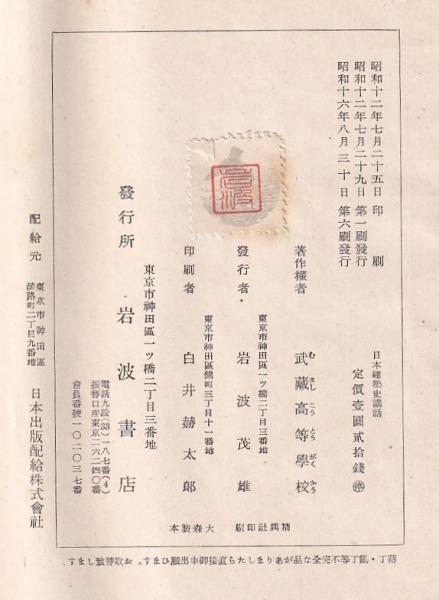 昭和十二年七月二十五日 印刷
昭和十二年七月二十九日 第一刷發行
昭和十六年八月三十日 第六刷發行
日本建築史講話
定價壹圓貳拾錢
著作權者 武藏高等學校
むさしこうとうがくかう
東京市神田區一ツ橋二丁目三番地
發行者 岩波茂雄
東京市神田區錦町三丁目十一番地
印刷者 白井赫太郎
岩波
東京市神田區一ツ橋二丁目三番地
發行所 岩波書店
電話九段(33)一八七番(4)
振替口座東京二六二四〇番
會員番號一〇二〇三七番
配給元 東京市神田區
淡路町二丁目九番地
日本出版配給株式會社
精興社印刷 大森製本
落丁・亂丁等不完全な品がありましたら直接御申出願ひます。お取替致します。